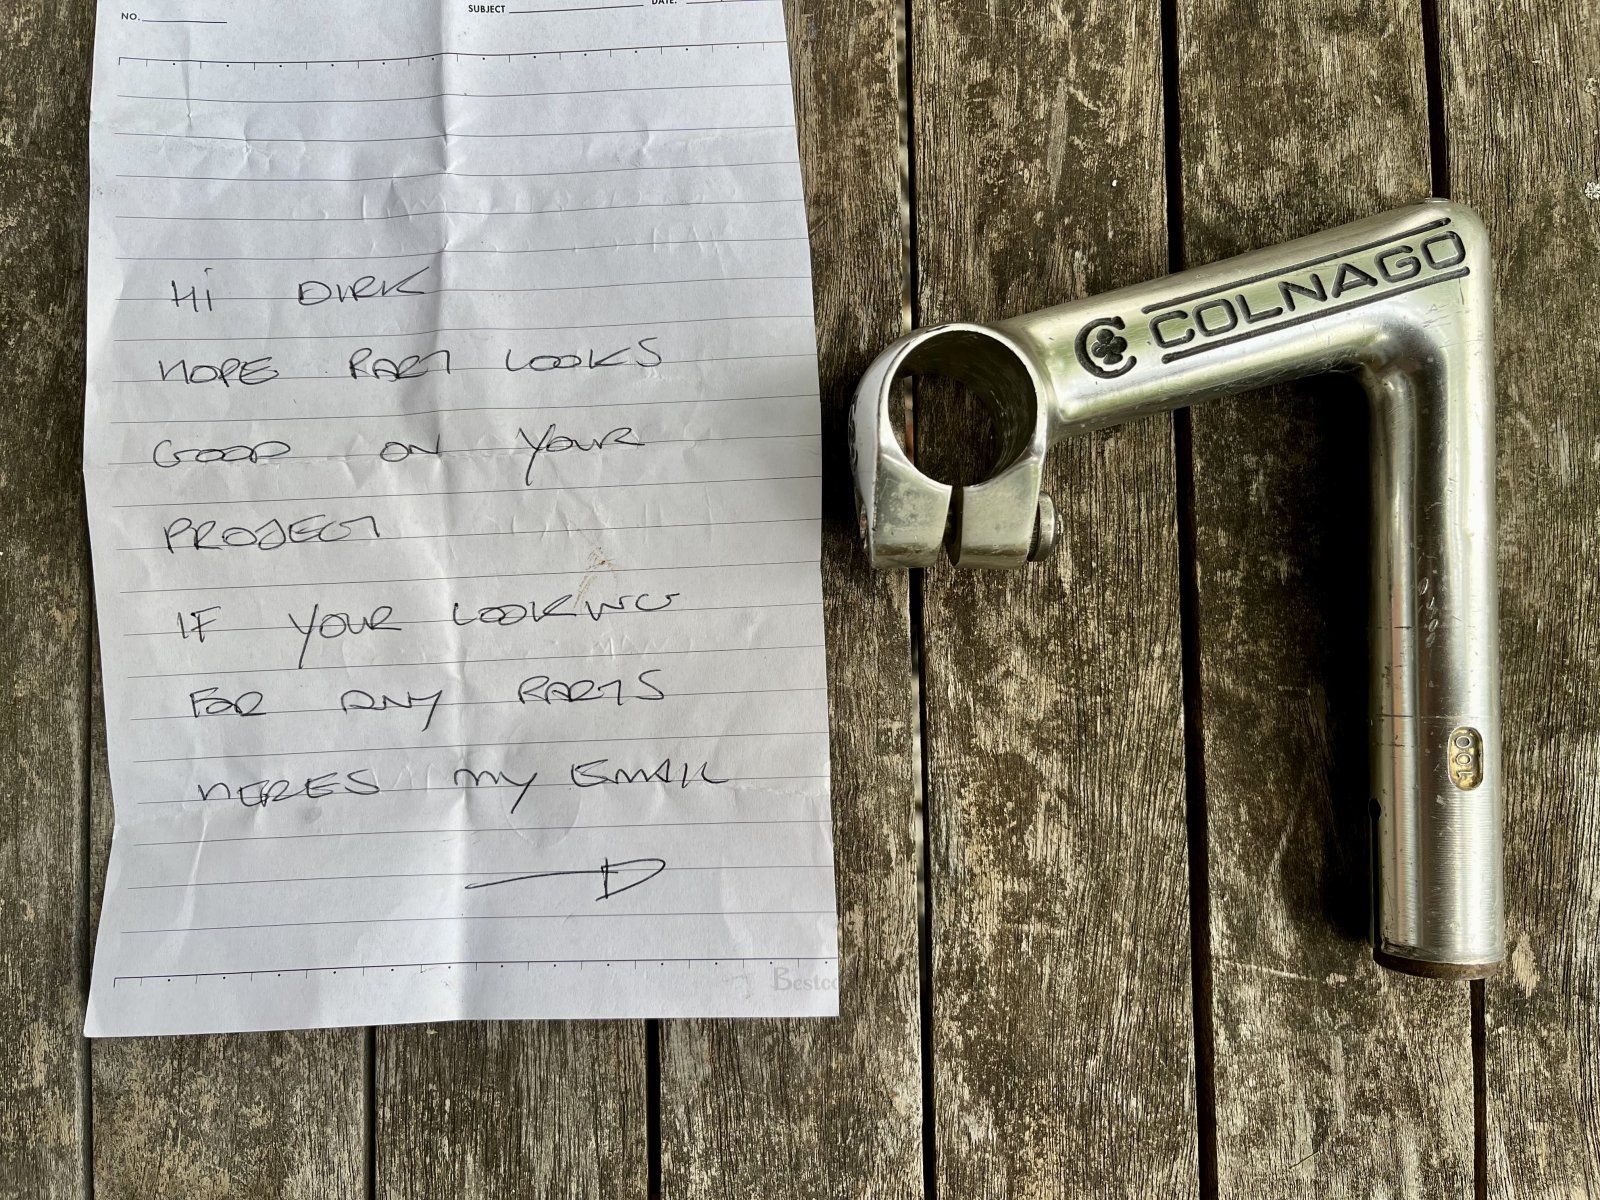 NO.
SUBJECT
DATE:
Hi DIRK
HOPE PART LOOKS
GOOD ON YOUR
PROJECT
IF YOUR LOOKING
FOR ANY PARTS
HERES MY EMAIL
COLNAGO
100